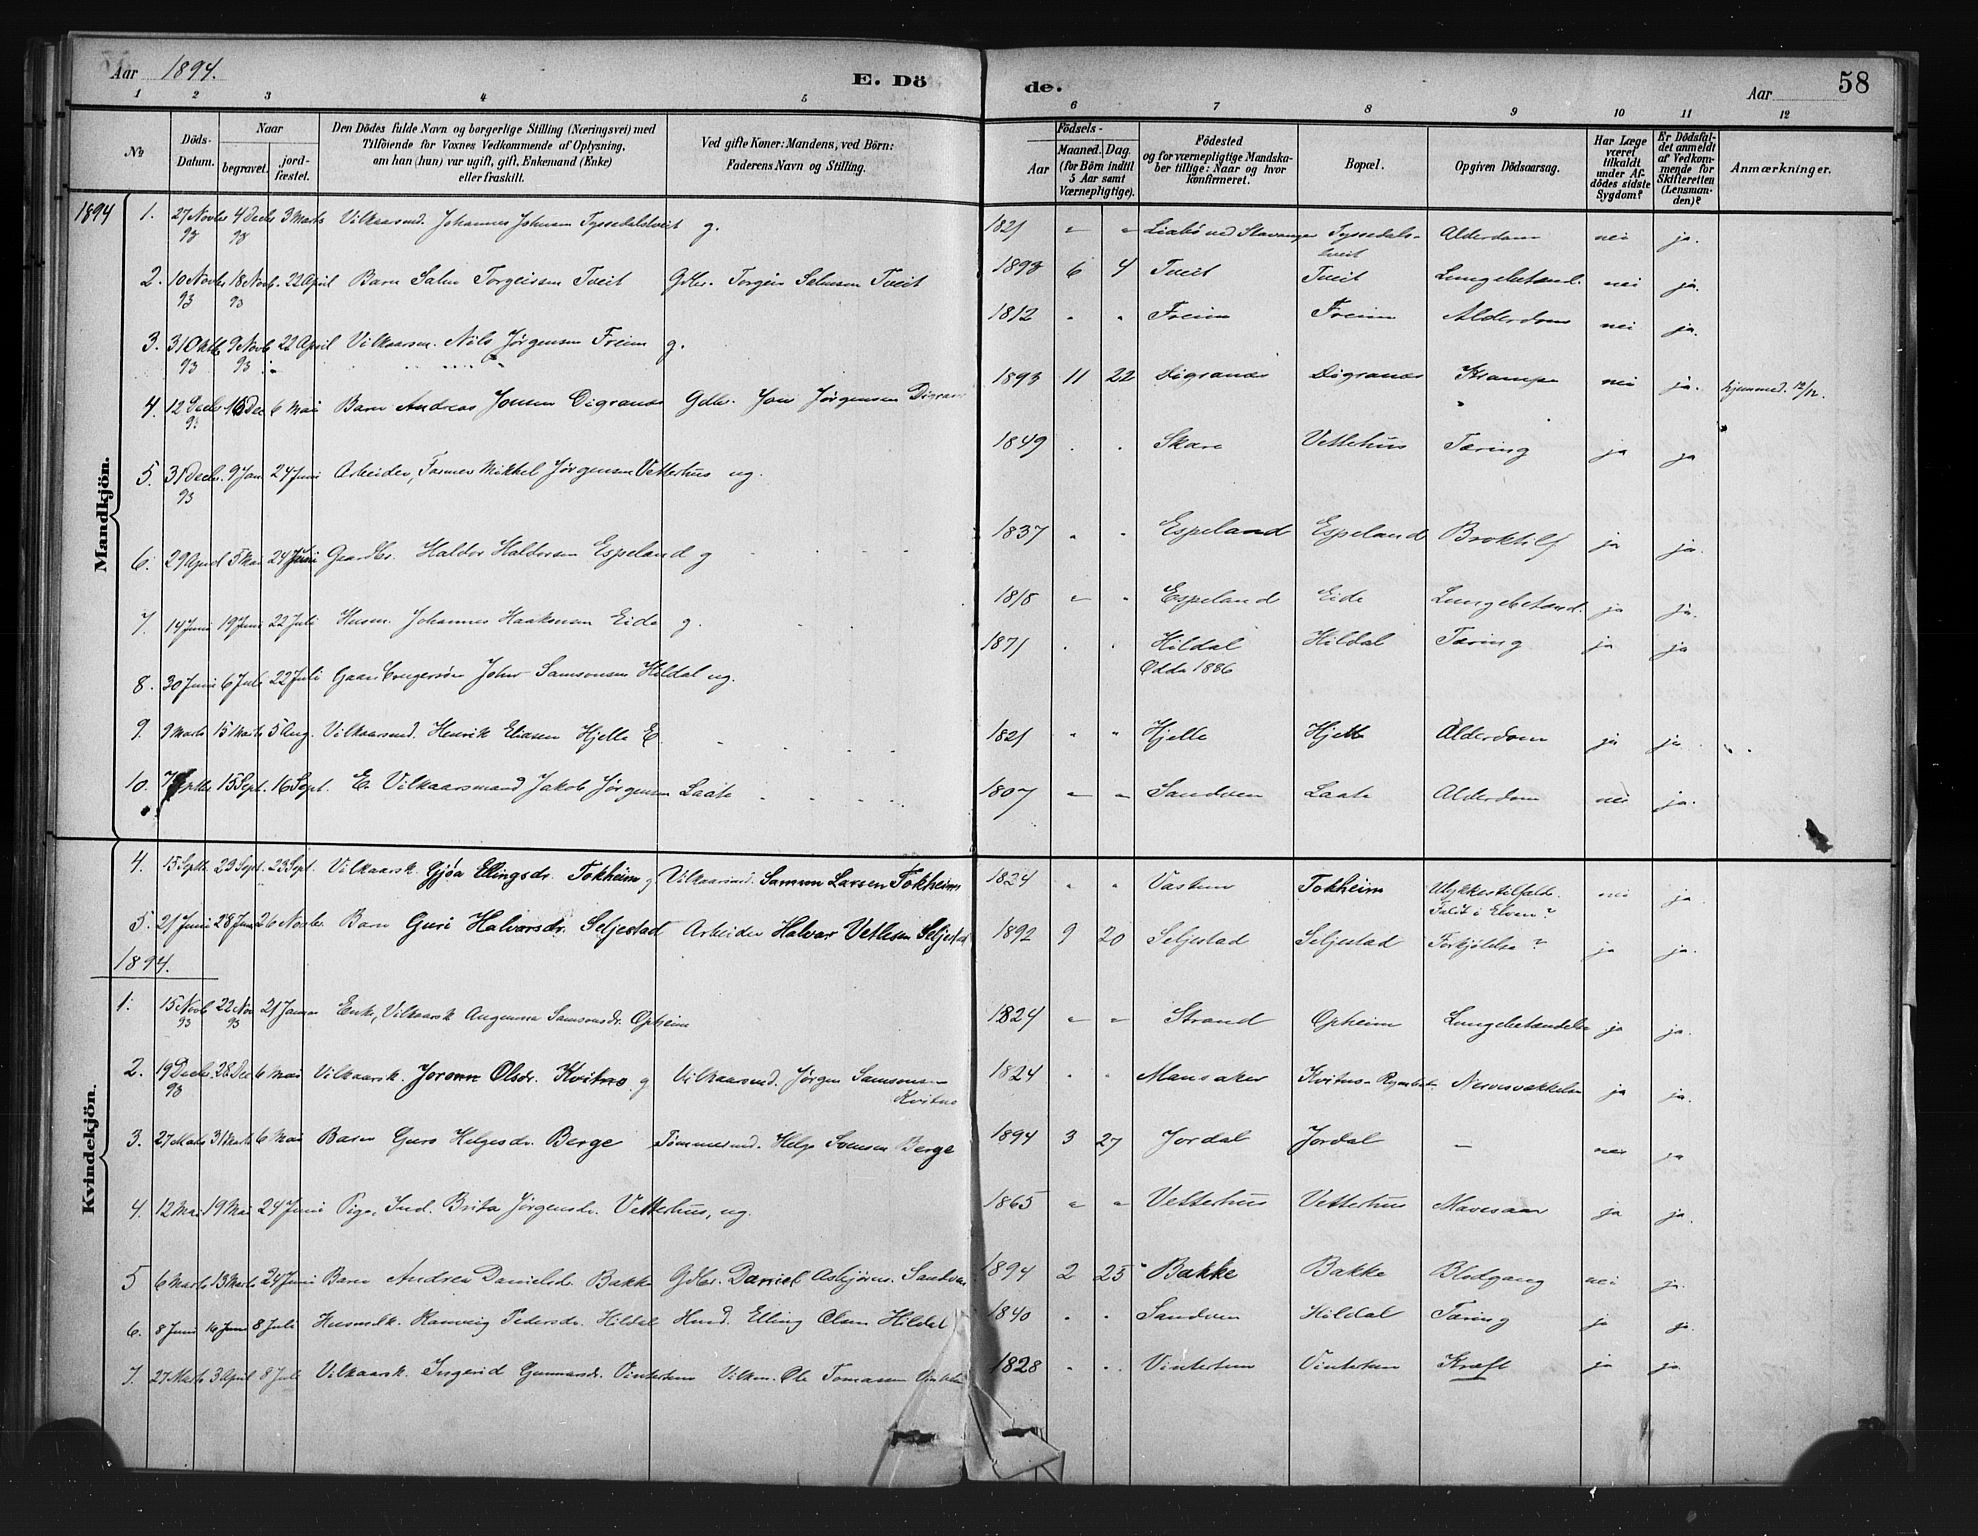 Aar 1894. E. Dö de. Aar 58
1 2 3 4 5 6 7 8 9 10 11 12
№
Döds-Datum.
Naar
begravet.
jord-fæstet.
Den Dödes fulde Navn og borgerlige Stilling (Næringsvei) med
Tilföiende for Voxnes Vedkommende af Oplysning,
om han (hun) var ugift, gift, Enkemand (Enke)
eller fraskilt.
Ved gifte Koner: Mandens, ved Börn:
Faderens Navn og Stilling.
Födsels-
Aar
Maaned. Dag.
(for Börn indtil
5 Aar samt
Værnepligtige).
Födested
og for værnepligtige Mandska-
ber tillige: Naar og hvor
konfirmeret.
Bopæl.
Opgiven Dödsaarsag.
Har Læge
været
tilkaldt
under Af-
dödes sidste
Sygdom?
Er Dödsfal-
det anmeldt
af Vedkom-
mende for
Skifteretten
(Lensman-
den)?
Anmærkninger.
Mandkjön.
1894 1. 27 Novbr 93 4 Decbr 93 3 Marts Vilkaarsmd. Johannes Johnsen Tyssedalstveit g. 1821 " " ved Stavanger Tyssedalstveit Alderdom nei ja.
2. 10 Novbr 93 18 Novb. 93 22 April Barn Salm Torgeirssen Tveit Gdbr. Torgeir Salmsen Tveit 1893 6 4 Tveit Tveit Lungebetænd. nei ja.
3. 31 Oktb 93 9 Novb 93 22 April Vilkaarsm. Nils Jørgensen Freim g. 1812 " " Freim Freim Alderdom nei ja.
4. 12 Decbr 93 16 Dec 6 Mai Barn Andreas Jonsen Digranes Gdbr. Jon Jørgensen Digranes 1893 11 22 Digranes Digranes Krampe nei ja. hjemmed. 12/12.
5. 31 Decbr. 93 9 Jan 24 Juni Arbeider, Mikkel Jørgensen Vetterhus ug. 1849 " " Skare Vettehus Tæring ja ja
6. 29 April 5 Mai 24 Juni Gaardbr. Haldor Haldorsen Espeland g 1837 " " Espeland Espeland Broktilf ja ja.
7. 14 Juni 19 Juni 22 Juli Husm. Johannes Haaksensen Eide g. 1818 " " Espeland Eide Lungebetænd. ja ja.
8. 30 Juni 6 Juli 22 Juli John Samsonsen Hildal ug. 1871 " " Hildal Odda 1886 Hildal Tæring ja ja
9. 9 Marts 15 Marts 5 Aug. Vilkaarsmd. Henrik Eliasen Hjelle E. 1821 " " Hjelle Hjelle Alderdom ja ja
10. 7 Septbr 15 Sept. 16 Sept. E. Vilkaarsmand Jakob Jørgensen Laate 1807 " " Sandven Laate Alderdom nei ja.
Kvindekjön.
4. 15 Septbr. 23 Sept. 23 Sept. Vilkaarsk. Gjøa Ellingsdr. Tokheim g Vilkaarsmd. Samson Larsen Tokheim 1824 " " Vastun Tokheim Ulykkestilfælde. Faldt i Elven? nei ja.
5. 21 Juni 28 Juni 26 Novbr. Barn Guri Halvarsdr. Seljestad Arbeider Halvar Vetlesen Seljestad 1892 9 20 Seljestad Seljestad Forkjølelse? ja ja.
1894.
1. 15 Novb 93 22 Nov 93 21 Januar Enke, Vilkaarsk Angunna Samsonsdr. Opheim 1824 " " Strand Opheim Lungebetændelse ja ja.
2. 19 Decbr. 93 28 Dec 6 Mai Vilkaarsk. Joronn Olsdr. Kvitno g Vilkaarsmd. Jørgen Samsonsen Kvitno 1824 " " Mansaker Kvitno Nervesvækkelse ja ja.
3. 27 Marts 31 Marts 6 Mai Barn Guro Helgesdr. Berge Tømmermd. Helge Berge 1894 3 27 Jordal Jordal — nei ja
4. 12 Mai 19 Mai 24 Juni Pige, Ind. Brita Jørgensdr. Vetterhus, ug. 1865 " " Vetterhus Vetterhus Mavesaar ja ja.
5 6 Marts 13 Marts 24 Juni Barn Andrea Danielsdr. Bakke Gdbr. Daniel Asbjørns. Sandven 1894 2 25 Bakke Bakke Blodgang nei ja.
6. 8 Juni 16 Juni 8 Juli Husmdk. Ranveig Pedersdr. Hildal Husmd. Elling Olsen Hildal 1840 " " Sandven Hildal Tæring ja ja.
7. 27 Marts 3 April 8 Juli Vilkaarsk. Ingerid Gunnarsdr. Vintertun Vilkm. Ole Tomassen Vintertun 1828 " " Vintertun Vintertun Kræft ja ja